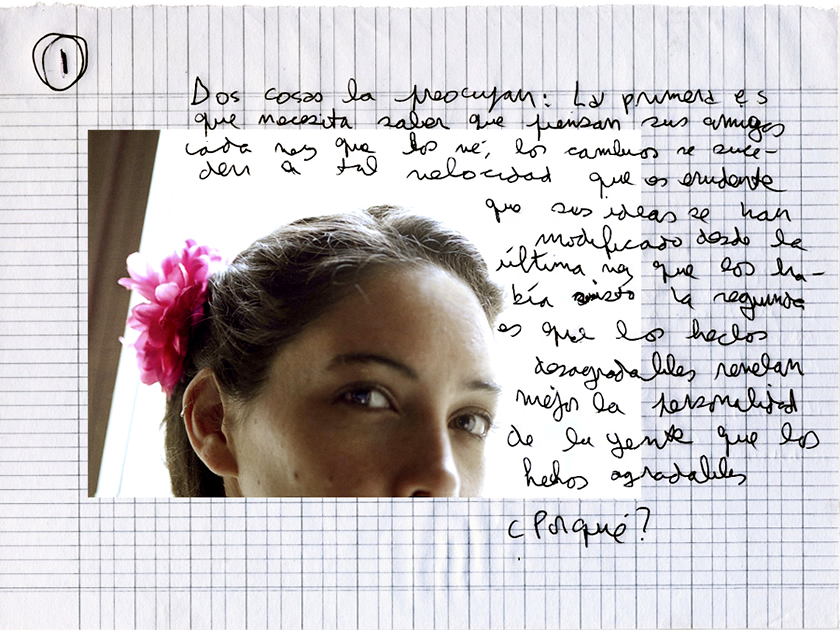 1
Dos cosas la preocupan: La primera es
que necesita saber que piensan sus amigos
cada vez que los vé, los cambios se suce-
den a tal velocidad que es evidente
que sus ideas se han
modificado desde la
última vez que los ha-
bía visto la segunda
es que los hechos
desagradables revelan
mejor la personalidad
de la gente que los
hechos agradables
¿Porqué?